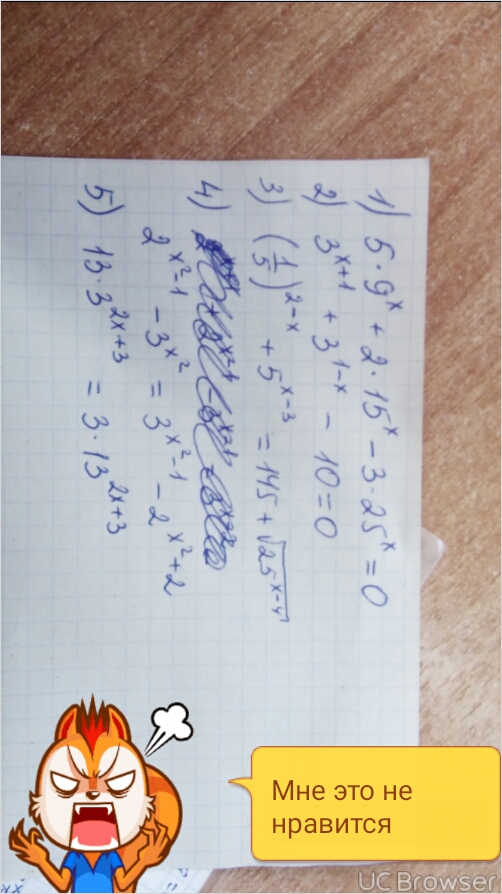 1) 5·9^x + 2·15^x − 3·25^x = 0
2) 3^{x+1} + 3^{1−x} − 10 = 0
3) (1/5)^{2−x} + 5^{x−3} = 145 + √(25^{x−4})
4)
2^{x²−1} − 3^{x²} = 3^{x²−1} − 2^{x²+2}
5) 13·3^{2x+3} = 3·13^{2x+3}
Мне это не
нравится
UC Browser